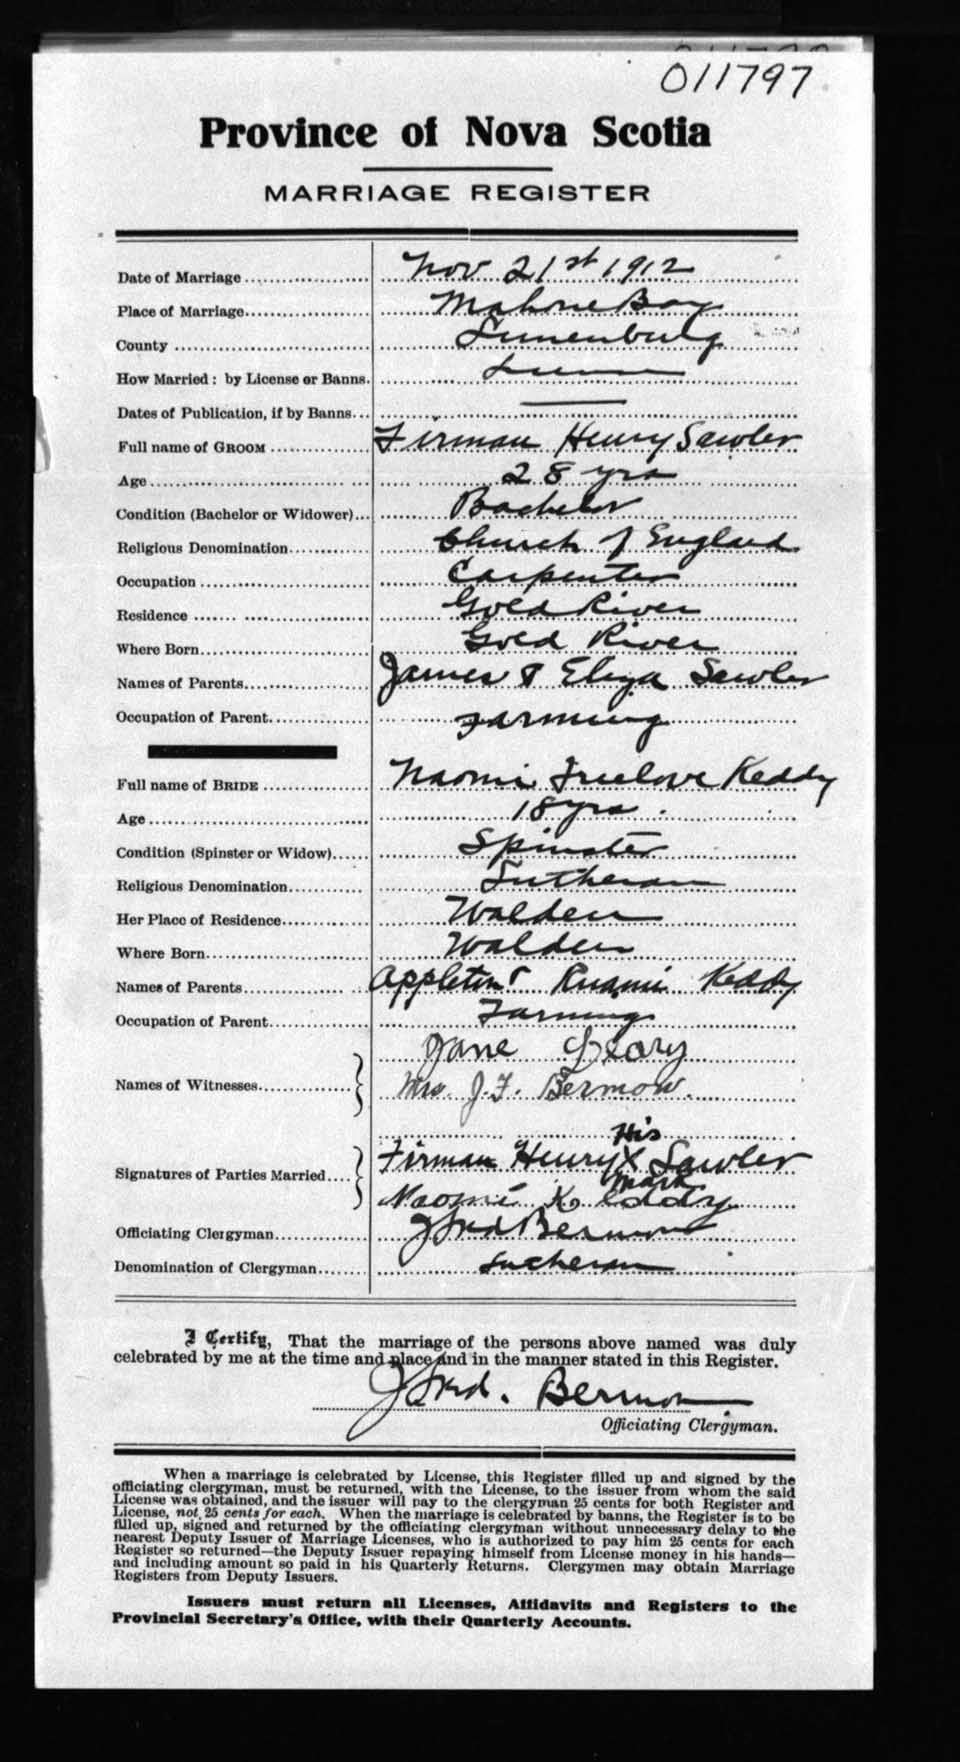 011797
Province of Nova Scotia
MARRIAGE REGISTER
Date of Marriage Nov 21st 1912
Place of Marriage Mahone Bay
County Lunenburg
How Married: by License or Banns. License
Dates of Publication, if by Banns —
Full name of GROOM Firman Henry Sawler
Age 28 yrs
Condition (Bachelor or Widower) Bachelor
Religious Denomination Church of England
Occupation Carpenter
Residence Gold River
Where Born Gold River
Names of Parents James & Eliza Sawler
Occupation of Parent Farming
Full name of BRIDE Naomi Freelove Keddy
Age 18 yrs.
Condition (Spinster or Widow) Spinster
Religious Denomination Lutheran
Her Place of Residence Walden
Where Born Walden
Names of Parents Appleton & Keddy
Occupation of Parent Farming
Jane Geary
Names of Witnesses
Mrs. J. F. Bermon.
His
Firman Henry X Sawler
Signatures of Parties Married
mark
Naomi Keddy
Officiating Clergyman J Fred Bermon
Denomination of Clergyman Lutheran
I Certify, That the marriage of the persons above named was duly
celebrated by me at the time and place and in the manner stated in this Register.
J Fred. Bermon
Officiating Clergyman.
When a marriage is celebrated by License, this Register filled up and signed by the
officiating clergyman, must be returned, with the License, to the issuer from whom the said
License was obtained, and the issuer will pay to the clergyman 25 cents for both Register and
License, not 25 cents for each. When the marriage is celebrated by banns, the Register is to be
filled up, signed and returned by the officiating clergyman without unnecessary delay to the
nearest Deputy Issuer of Marriage Licenses, who is authorized to pay him 25 cents for each
Register so returned—the Deputy Issuer repaying himself from License money in his hands—
and including amount so paid in his Quarterly Returns. Clergymen may obtain Marriage
Registers from Deputy Issuers.
Issuers must return all Licenses, Affidavits and Registers to the
Provincial Secretary's Office, with their Quarterly Accounts.